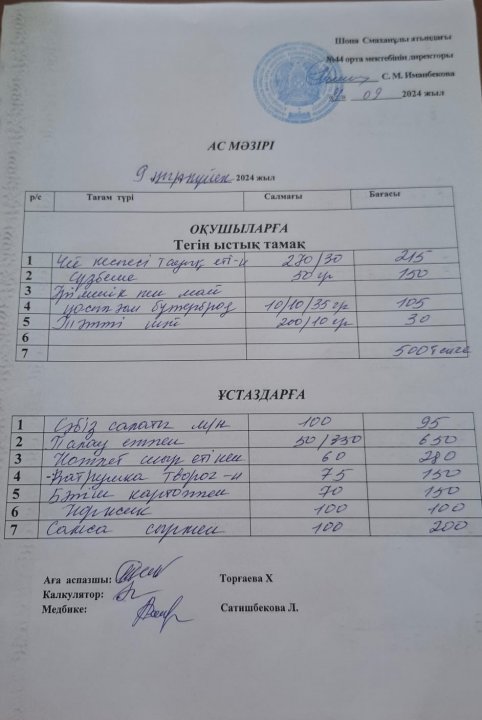 Шона Смаханұлы атындағы
№44 орта мектебінің директоры
С. М. Иманбекова
«9» 09 2024 жыл
АС МӘЗІРІ
9 қыркүйек 2024 жыл
р/с Тағам түрі Салмағы Бағасы
ОҚУШЫЛАРҒА
Тегін ыстық тамақ
1 Үй кеспесі тауық еті-н 270/30 215
2 Сүзбеше 50 гр 150
3 Ірімшік пен май
4 қосылған бутерброд 10/10/35 гр 105
5 Тәтті шәй 200/10 гр 30
6
7 500 теңге
ҰСТАЗДАРҒА
1 Сәбіз салаты м/н 100 95
2 Палау етпен 50/ 650
3 Котлет сиыр етінен 60 280
4 Ватрушка творог-н 75 150
5 Бәтіш картоппен 70 150
6 100 100
7 Самса сырмен 100 200
Аға аспазшы: Торғаева Х
Калкулятор:
Медбике: Сатишбекова Л.